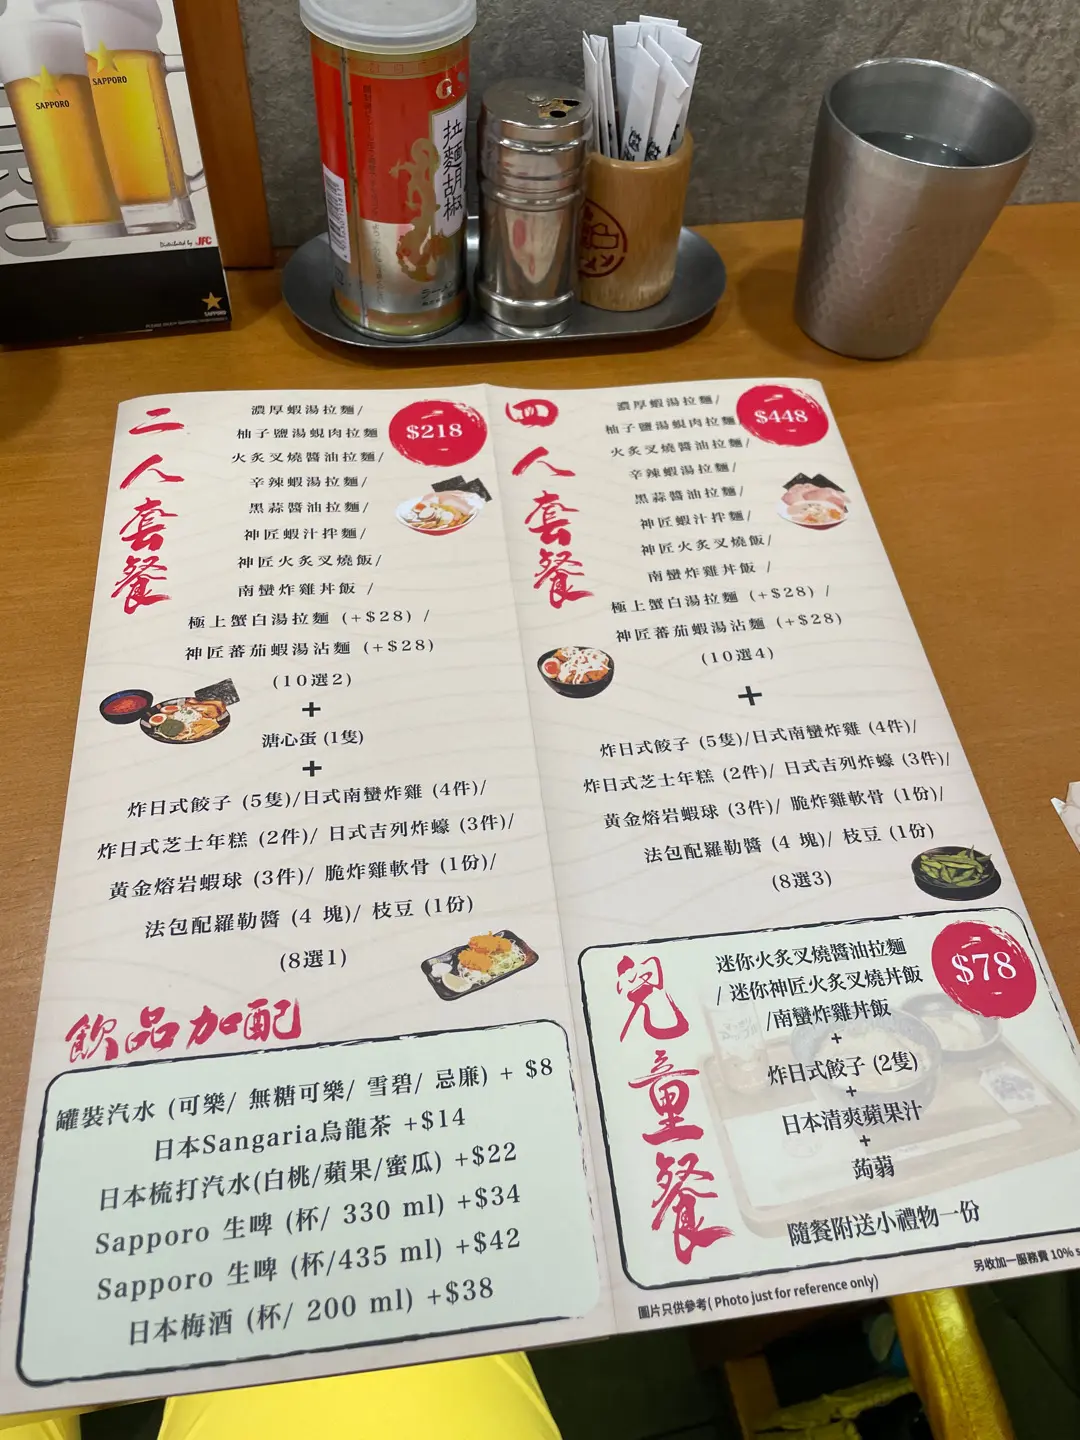 SAPPORO
SAPPORO
Distributed by JFC
SAPPORO
拉麵胡椒
二人套餐
$218
濃厚蝦湯拉麵/
柚子鹽湯蜆肉拉麵
火炙叉燒醬油拉麵/
辛辣蝦湯拉麵/
黑蒜醬油拉麵/
神匠蝦汁拌麵/
神匠火炙叉燒飯/
南蠻炸雞丼飯 /
極上蟹白湯拉麵 (+$28) /
神匠蕃茄蝦湯沾麵 (+$28)
(10選2)
+
溏心蛋 (1隻)
+
炸日式餃子 (5隻)/日式南蠻炸雞 (4件)/
炸日式芝士年糕 (2件)/ 日式吉列炸蠔 (3件)/
黃金熔岩蝦球 (3件)/ 脆炸雞軟骨 (1份)/
法包配羅勒醬 (4 塊)/ 枝豆 (1份)
(8選1)
飲品加配
罐裝汽水 (可樂/ 無糖可樂/ 雪碧/ 忌廉) + $8
日本Sangaria烏龍茶 +$14
日本梳打汽水(白桃/蘋果/蜜瓜) +$22
Sapporo 生啤 (杯/ 330 ml) +$34
Sapporo 生啤 (杯/435 ml) +$42
日本梅酒 (杯/ 200 ml) +$38
四人套餐
$448
濃厚蝦湯拉麵/
柚子鹽湯蜆肉拉麵
火炙叉燒醬油拉麵/
辛辣蝦湯拉麵/
黑蒜醬油拉麵/
神匠蝦汁拌麵/
神匠火炙叉燒飯/
南蠻炸雞丼飯 /
極上蟹白湯拉麵 (+$28) /
神匠蕃茄蝦湯沾麵 (+$28)
(10選4)
+
炸日式餃子 (5隻)/日式南蠻炸雞 (4件)/
炸日式芝士年糕 (2件)/ 日式吉列炸蠔 (3件)/
黃金熔岩蝦球 (3件)/ 脆炸雞軟骨 (1份)/
法包配羅勒醬 (4 塊)/ 枝豆 (1份)
(8選3)
兒童餐
$78
迷你火炙叉燒醬油拉麵
/ 迷你神匠火炙叉燒丼飯
/南蠻炸雞丼飯
+
炸日式餃子 (2隻)
+
日本清爽蘋果汁
+
蒟蒻
隨餐附送小禮物一份
另收加一服務費 10% s
圖片只供參考( Photo just for reference only)